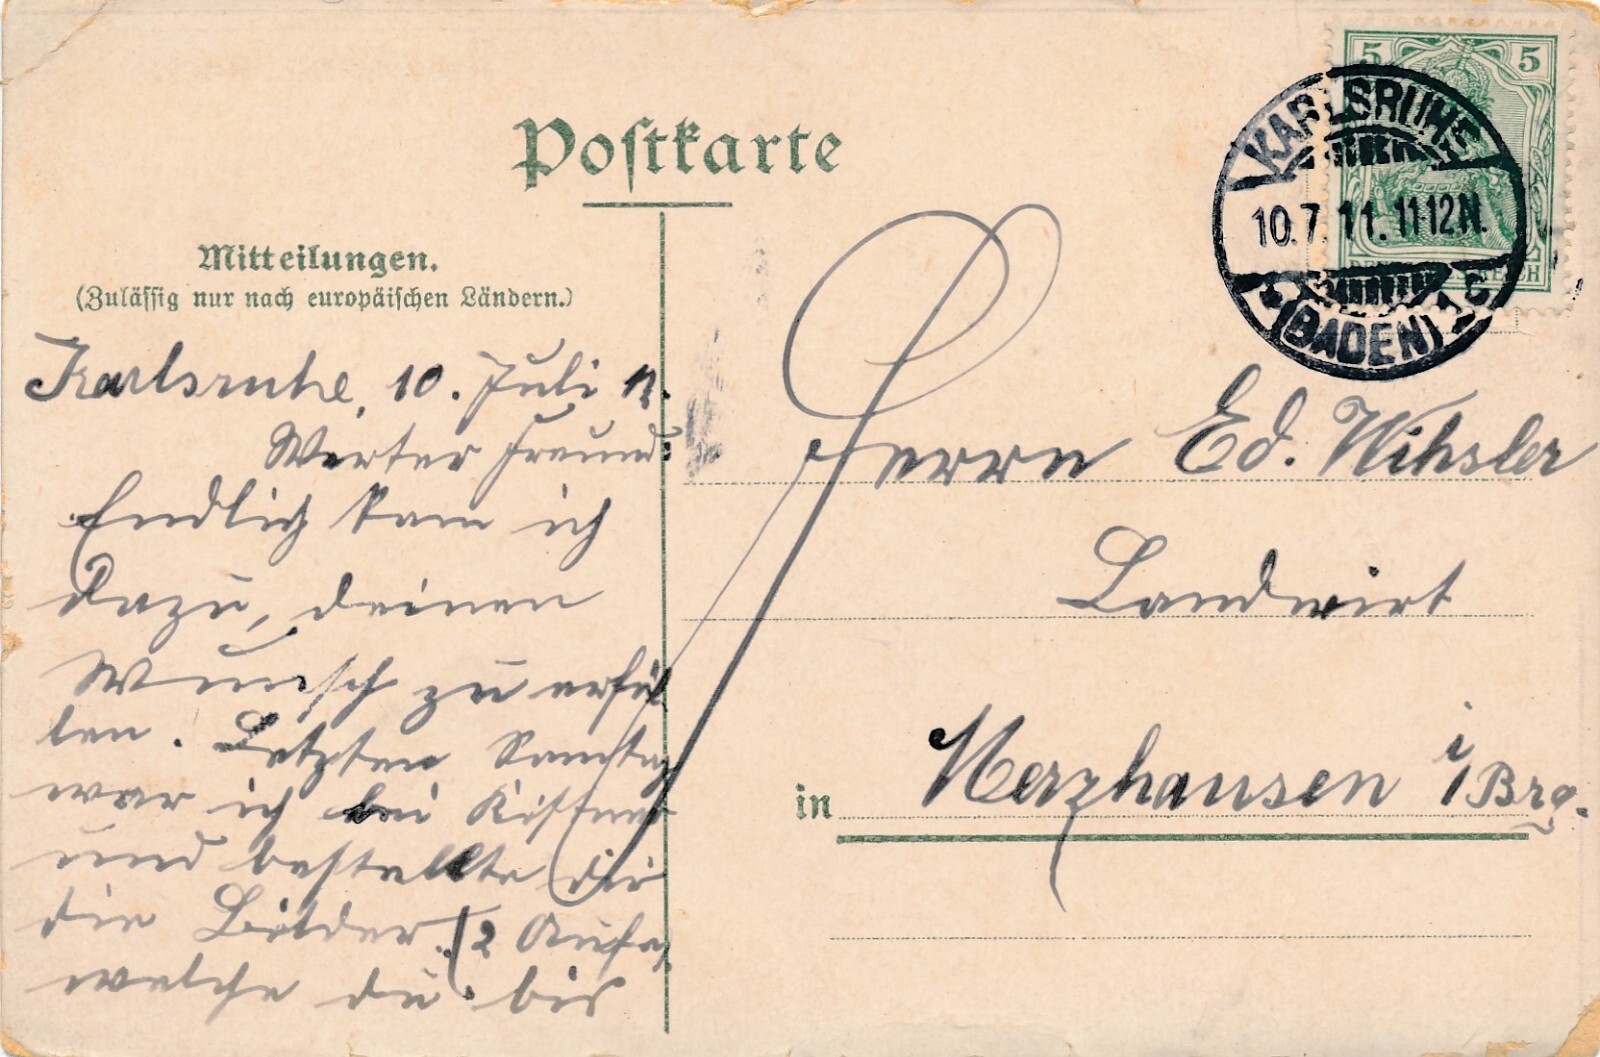 Postkarte
Mitteilungen.
(Zulässig nur nach europäischen Ländern.)
5 5
KARLSRUHE
10.7.11. 11-12N.
(BADEN)
Karlsruhe, 10. Juli 11.
Werter Freund:
Endlich kam ich
dazu, deinen
Wunsch zu erfül
len. Letzten Samstag
war ich bei Kistner
und bestellte dir
die Bilder. (2 Aufn
welche du bis
Herrn Ed.
Landwirt
in Merzhausen i/Brg.